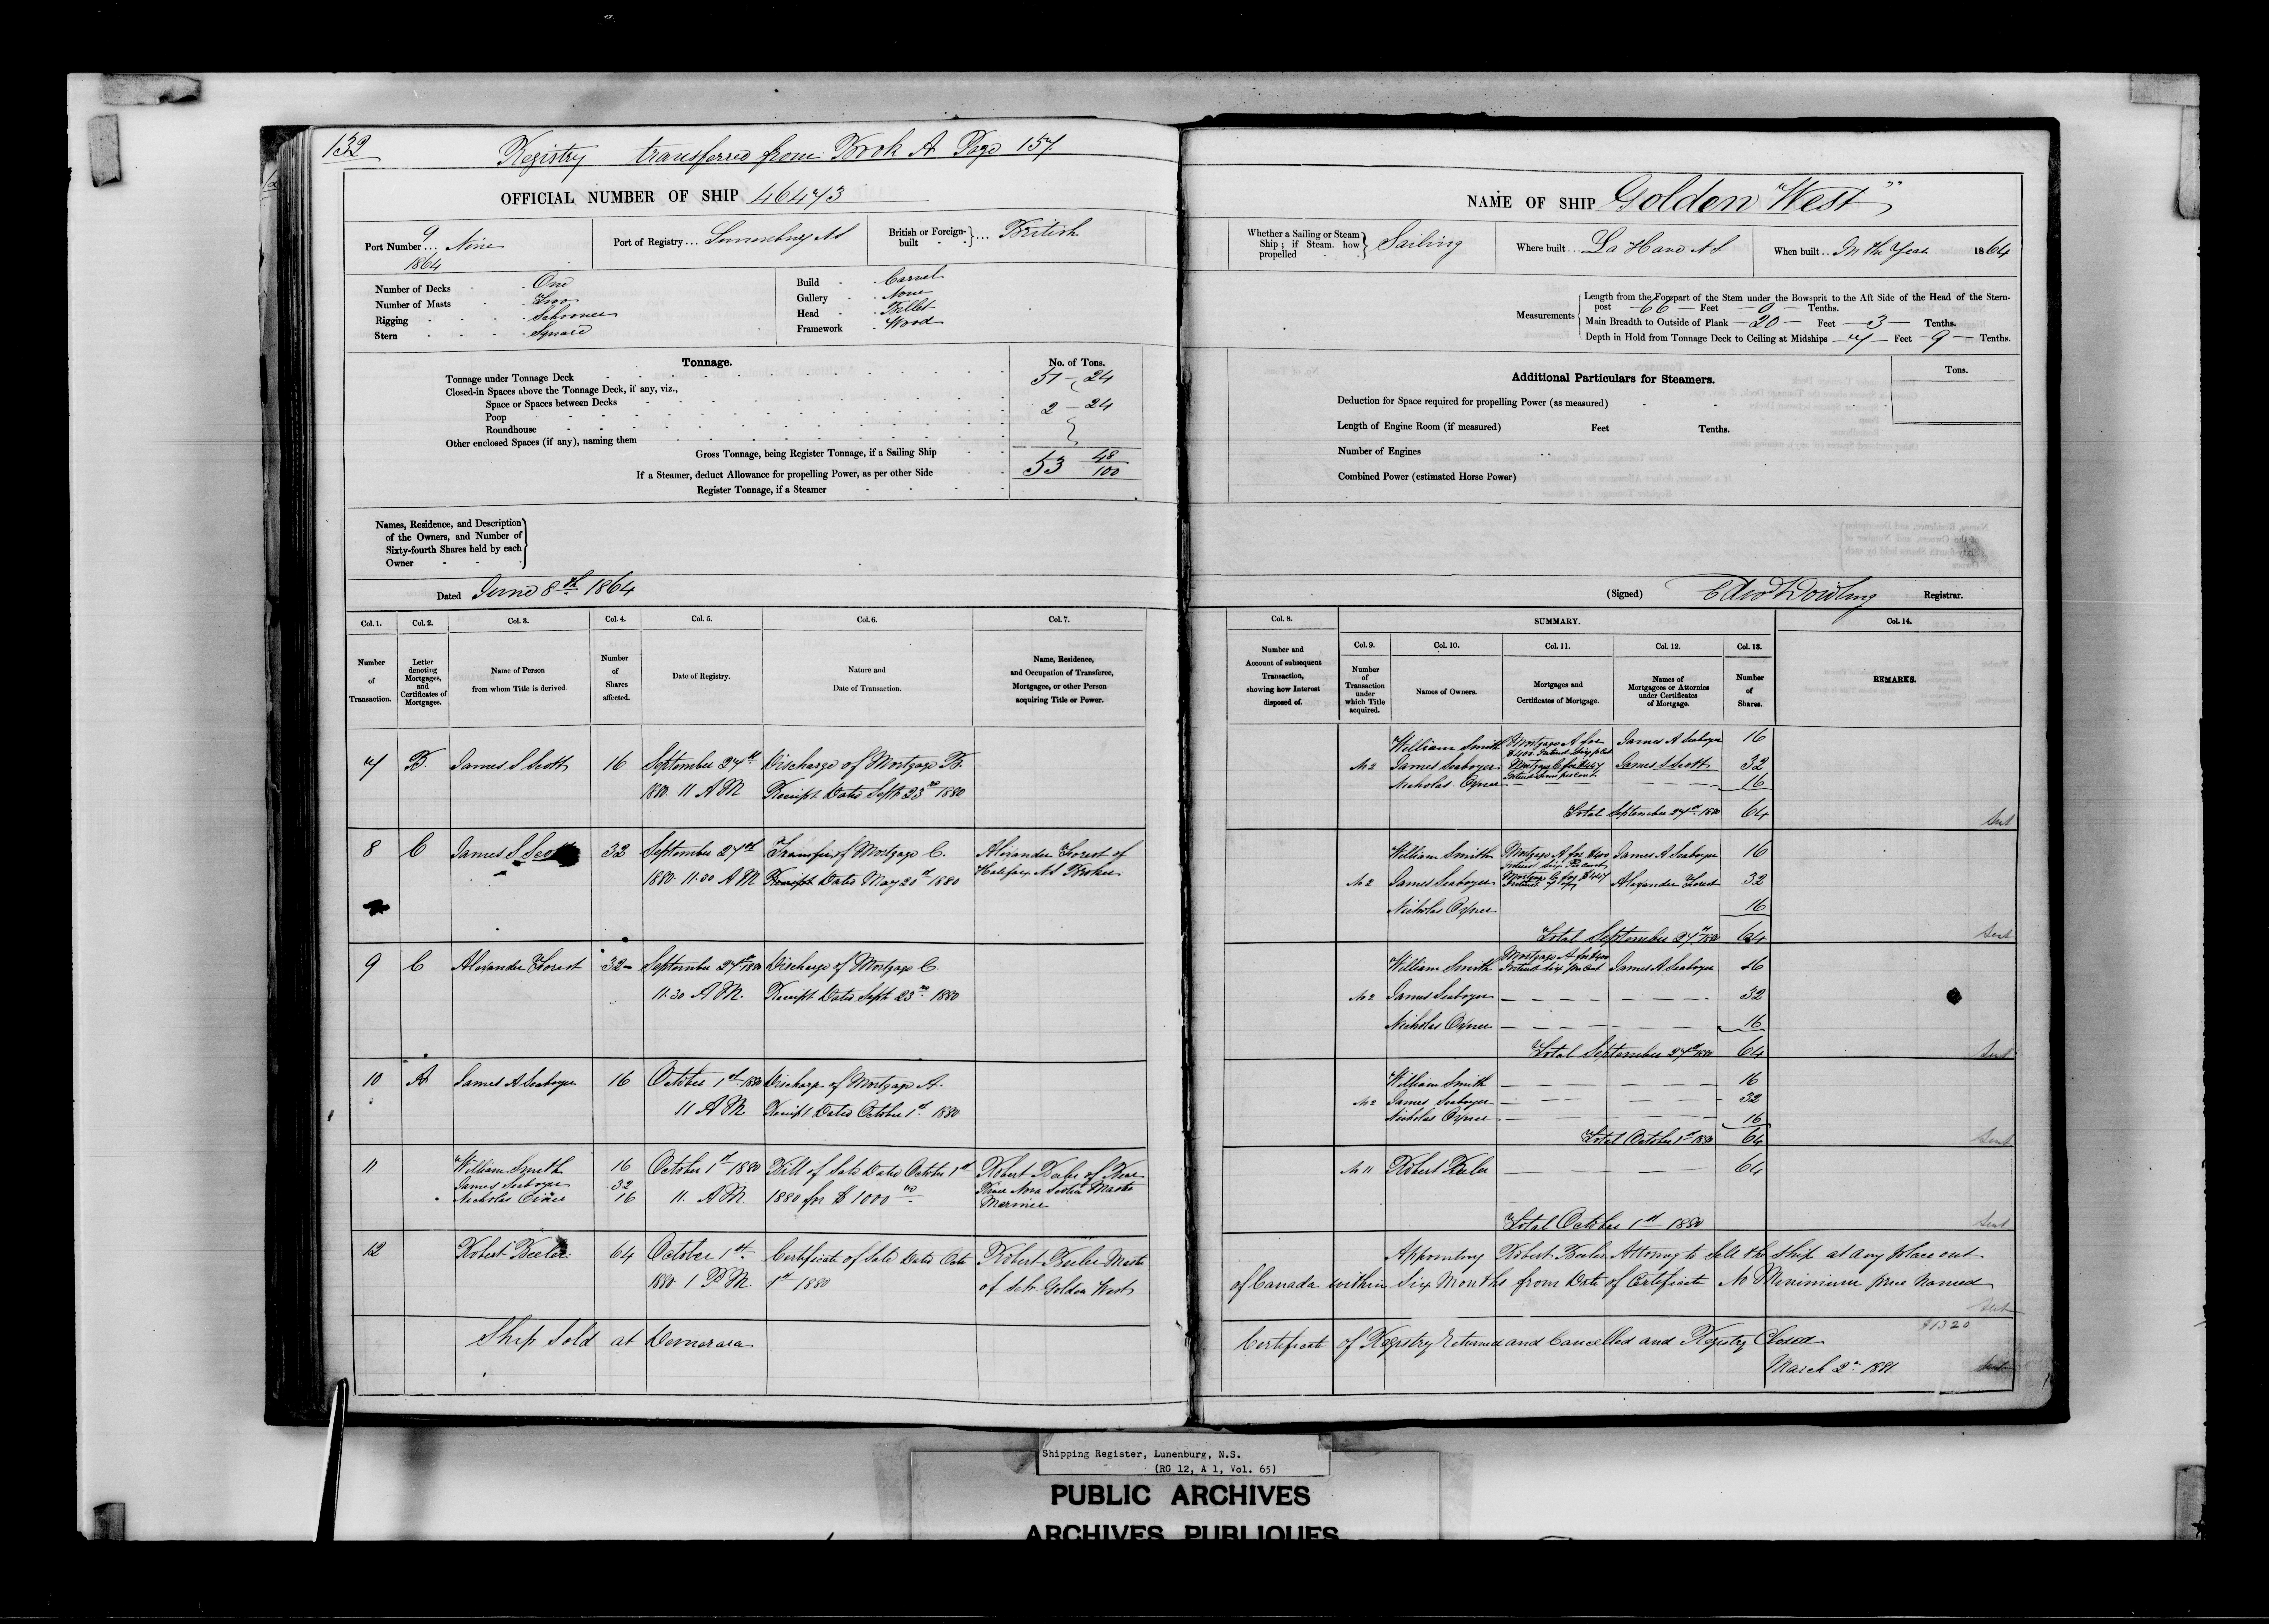 132
Registry transferred from Book A Page 157
OFFICIAL NUMBER OF SHIP 46473
Port Number ... 9 Nine
1864
Port of Registry ... Lunenburg NS
British or Foreign-built } ... British
Number of Decks One
Number of Masts Two
Rigging Schooner
Stern Square
Build Carvel
Gallery None
Head Billet
Framework Wood
Tonnage.
No. of Tons.
Tonnage under Tonnage Deck 51 - 24
Closed-in Spaces above the Tonnage Deck, if any, viz.,
Space or Spaces between Decks 2 - 24
Poop
Roundhouse
Other enclosed Spaces (if any), naming them
Gross Tonnage, being Register Tonnage, if a Sailing Ship 53 48/100
If a Steamer, deduct Allowance for propelling Power, as per other Side
Register Tonnage, if a Steamer
Names, Residence, and Description
of the Owners, and Number of
Sixty-fourth Shares held by each
Owner
Dated June 8th 1864
Col. 1. Col. 2. Col. 3. Col. 4. Col. 5. Col. 6. Col. 7.
Number of Transaction.
Letter denoting Mortgages, and Certificates of Mortgages.
Name of Person from whom Title is derived
Number of Shares affected.
Date of Registry.
Nature and Date of Transaction.
Name, Residence, and Occupation of Transferee, Mortgagee, or other Person acquiring Title or Power.
7 B. James S Scott 16 September 27th Discharge of Mortgage B.
1880. 11 AM Receipt Dated Septr 23rd 1880
8 C James S Scott 32 September 27th Transfer of Mortgage C. Alexander Forest of
1880. 11.30 AM Receipt Dated May 20th 1880 Halifax NS Broker
9 C Alexander Forest 32 September 27th 1880 Discharge of Mortgage C.
11.30 AM. Receipt Dated Septr 23rd 1880
10 A James A Seaboyer 16 October 1st 1880 Discharge of Mortgage A.
11 AM Receipt Dated October 1st 1880
11 William Smith 16 October 1st 1880 Bill of Sale Dated October 1st Robert Beeler of
James Seaboyer 32 Nova Scotia Master
Nicholas 16 11. AM 1880 for $1000 Mariner
12 Robert Beeler 64 October 1st Certificate of Sale Dated Octr Robert Beeler Master
1880. 1 PM. 1st 1880 of Schr Golden West
Ship Sold at Demerara
NAME OF SHIP Golden "West"
Whether a Sailing or Steam Ship; if Steam, how propelled } Sailing
Where built ... La Have NS
When built ... In the Year 1864
Measurements
Length from the Forepart of the Stem under the Bowsprit to the Aft Side of the Head of the Stern-
post - 66 - Feet - 0 - Tenths.
Main Breadth to Outside of Plank - 20 - Feet - 3 - Tenths.
Depth in Hold from Tonnage Deck to Ceiling at Midships - 7 - Feet - 9 - Tenths.
Additional Particulars for Steamers.
Tons.
Deduction for Space required for propelling Power (as measured)
Length of Engine Room (if measured) Feet Tenths.
Number of Engines
Combined Power (estimated Horse Power)
(Signed) Edwd Dowling Registrar.
Col. 8. SUMMARY. Col. 14.
Col. 9. Col. 10. Col. 11. Col. 12. Col. 13.
Number and Account of subsequent Transaction, showing how Interest disposed of.
Number of Transaction under which Title acquired.
Names of Owners.
Mortgages and Certificates of Mortgage.
Names of Mortgagees or Attornies under Certificates of Mortgage.
Number of Shares.
REMARKS.
William Smith Mortgage A for James A Seaboyer 16
$400 Interest Six pr Ct
No 2 James Seaboyer Mortgage C for $447 James S Scott 32
Nicholas - - 16
Total September 27th 1880 64
Sent
William Smith Mortgage A for $400 James A Seaboyer 16
Interest Six Per Cent
No 2 James Seaboyer Mortgage C for $447 Alexander Forest 32
Nicholas 16
Total September 27th 1880 64
Sent
William Smith Mortgage A for $400 James A Seaboyer 16
Interest Six per Cent
No 2 James Seaboyer - - 32
Nicholas - - 16
Total September 27th 1880 64
Sent
William Smith - - 16
No 2 James Seaboyer - - 32
Nicholas - - 16
Total October 1st 1880 64
Sent
No 11 Robert Beeler - - 64
Total October 1st 1880
Sent
Appointing Robert Beeler Attorney to sell the Ship at any place out
of Canada within Six Months from Date of Certificate No Minimum price Named
Sent
$1320
Certificate of Registry Returned and Cancelled and Registry Closed
March 2nd 1881
Sent
Shipping Register, Lunenburg, N.S.
(RG 12, A 1, Vol. 65)
PUBLIC ARCHIVES
ARCHIVES PUBLIQUES